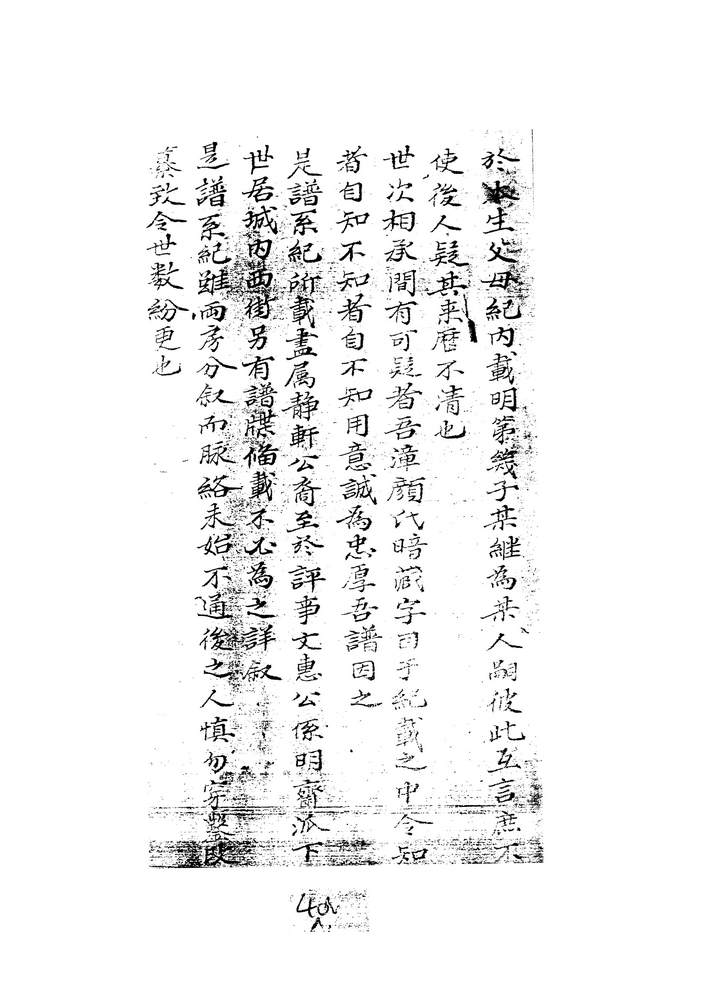 於本生父母紀内載明第幾子某継為某人嗣彼此互言庶不
使後人疑其来歷不清也
世次相承間有可疑者吾潼顔代暗蔵字目于紀載之中令知
者自知不知者自不知用意誠為忠厚吾譜因之
是譜系紀所載盡属静軒公裔至於評事文惠公係明齋派下
世居城内西街另有譜牒俻載不必為之詳叙
是譜系紀雖両房分叙而脉絡未始不通後之人慎勿穿鑿
纂致令世数紛更也